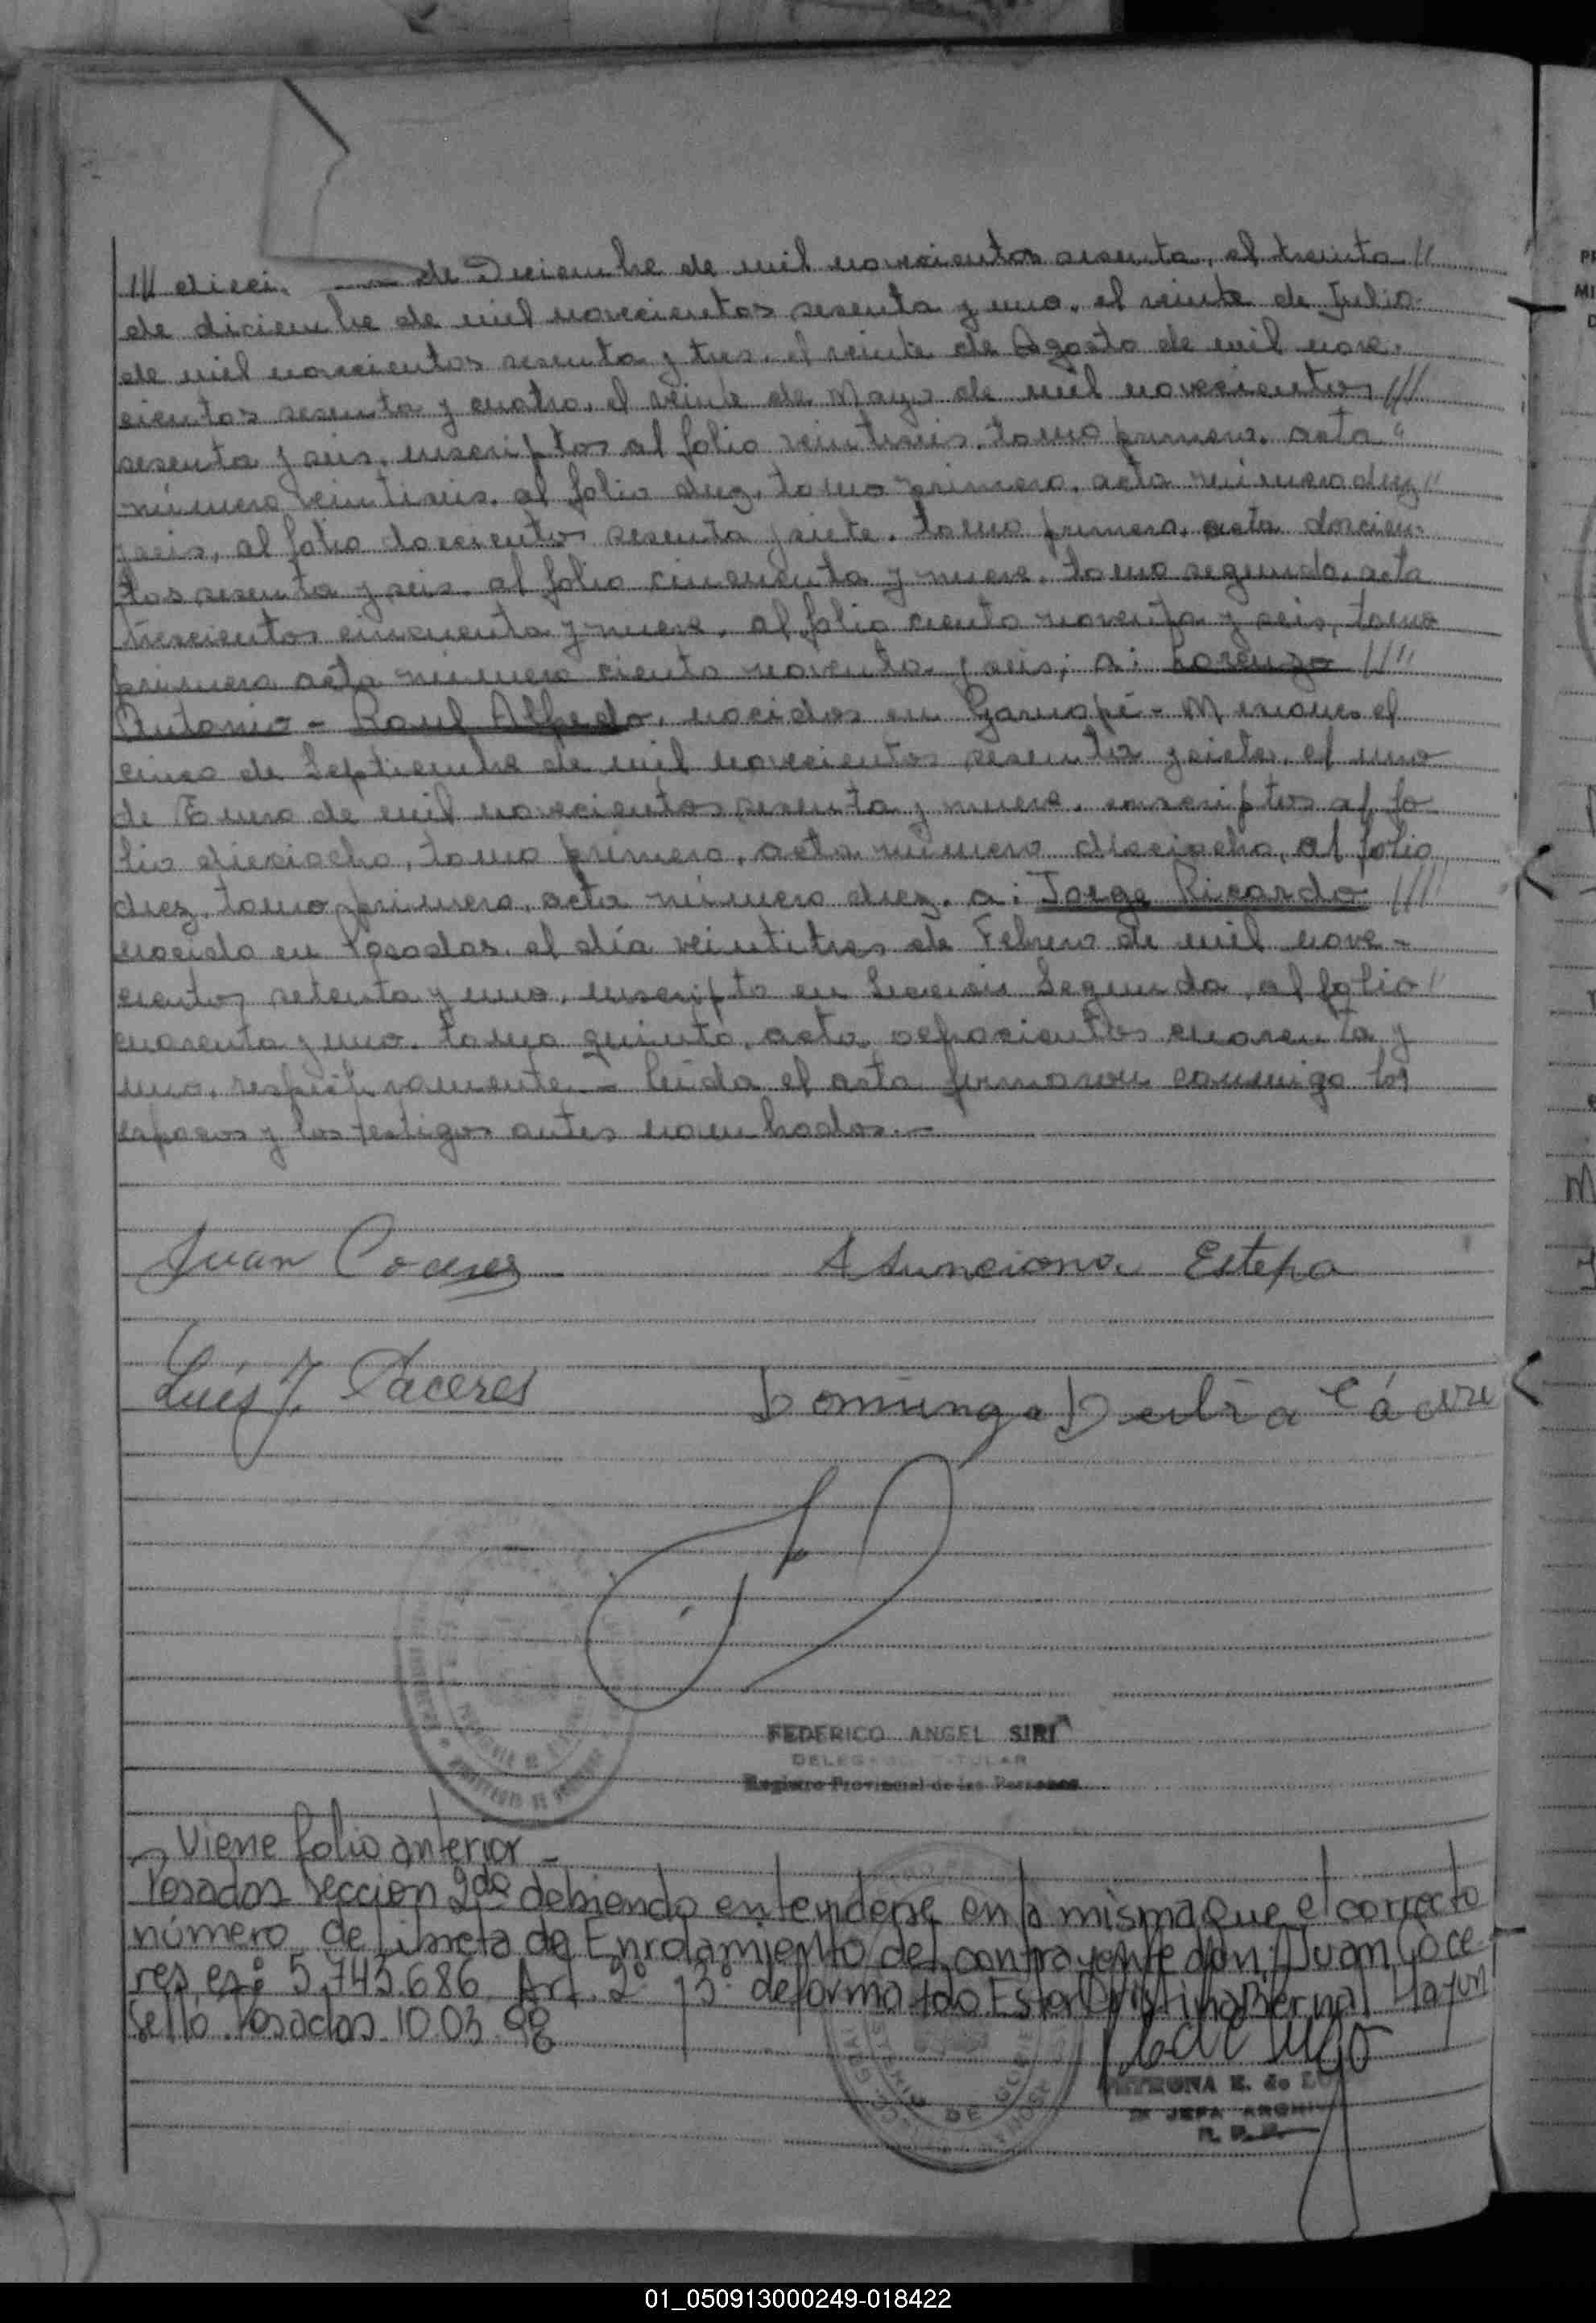 /// dieci. —— de Diciembre de mil novecientos sesenta, el treinta //
de diciembre de mil novecientos sesenta y uno, el veinte de Julio
de mil novecientos sesenta y tres, el veinte de Agosto de mil nove-
cientos sesenta y cuatro, el veinte de Mayo de mil novecientos ///
sesenta y seis, inscriptos al folio veintiseis, tomo primero, acta "
número veintiseis, al folio diez, tomo primero, acta número diez //
y seis, al folio doscientos sesenta y siete, tomo primero, acta doscien-
tos sesenta y seis, al folio cincuenta y nueve, tomo segundo, acta
trescientos cincuenta y nueve, al folio ciento noventa y seis, tomo
primero acta número ciento noventa y seis; a: Lorenzo ////
Antonio - Raul Alfredo, nacidos en Garuapé - Misiones el
cinco de Septiembre de mil novecientos sesenta y siete, el uno
de Enero de mil novecientos sesenta y nueve, inscriptos al fo-
lio dieciocho, tomo primero, acta número dieciocho, al folio
diez, tomo primero, acta número diez, a: Jorge Ricardo ////
nacido en Posadas, el día veintitres de Febrero de mil nove-
cientos setenta y uno, inscripto en Sección Segunda, al folio //
cuarenta y uno, tomo quinto, acta ochocientos cuarenta y
uno, respectivamente.- Leída el acta firmaron conmigo los
esposos y los testigos antes nombrados.-
Juan Coceres
Asunciona Estepa
Luis J. Cáceres
Dominga Delia Cácere
FEDERICO ANGEL SIRI
DELEGADO TITULAR
Registro Provincial de las Personas
- Viene folio anterior -
Posadas Sección 2da debiendo entenderse en la misma que el correcto
número de Libreta de Enrolamiento del contrayente don: Juan Coce-
res, es: 5.743.686 Art. 2° y 3° de forma fdo Ester Cristina Bernal Hay un
sello. Posadas 10 03 98
PETRONA E. de
JEFA ARCHI
R. P. P.
01_050913000249-018422